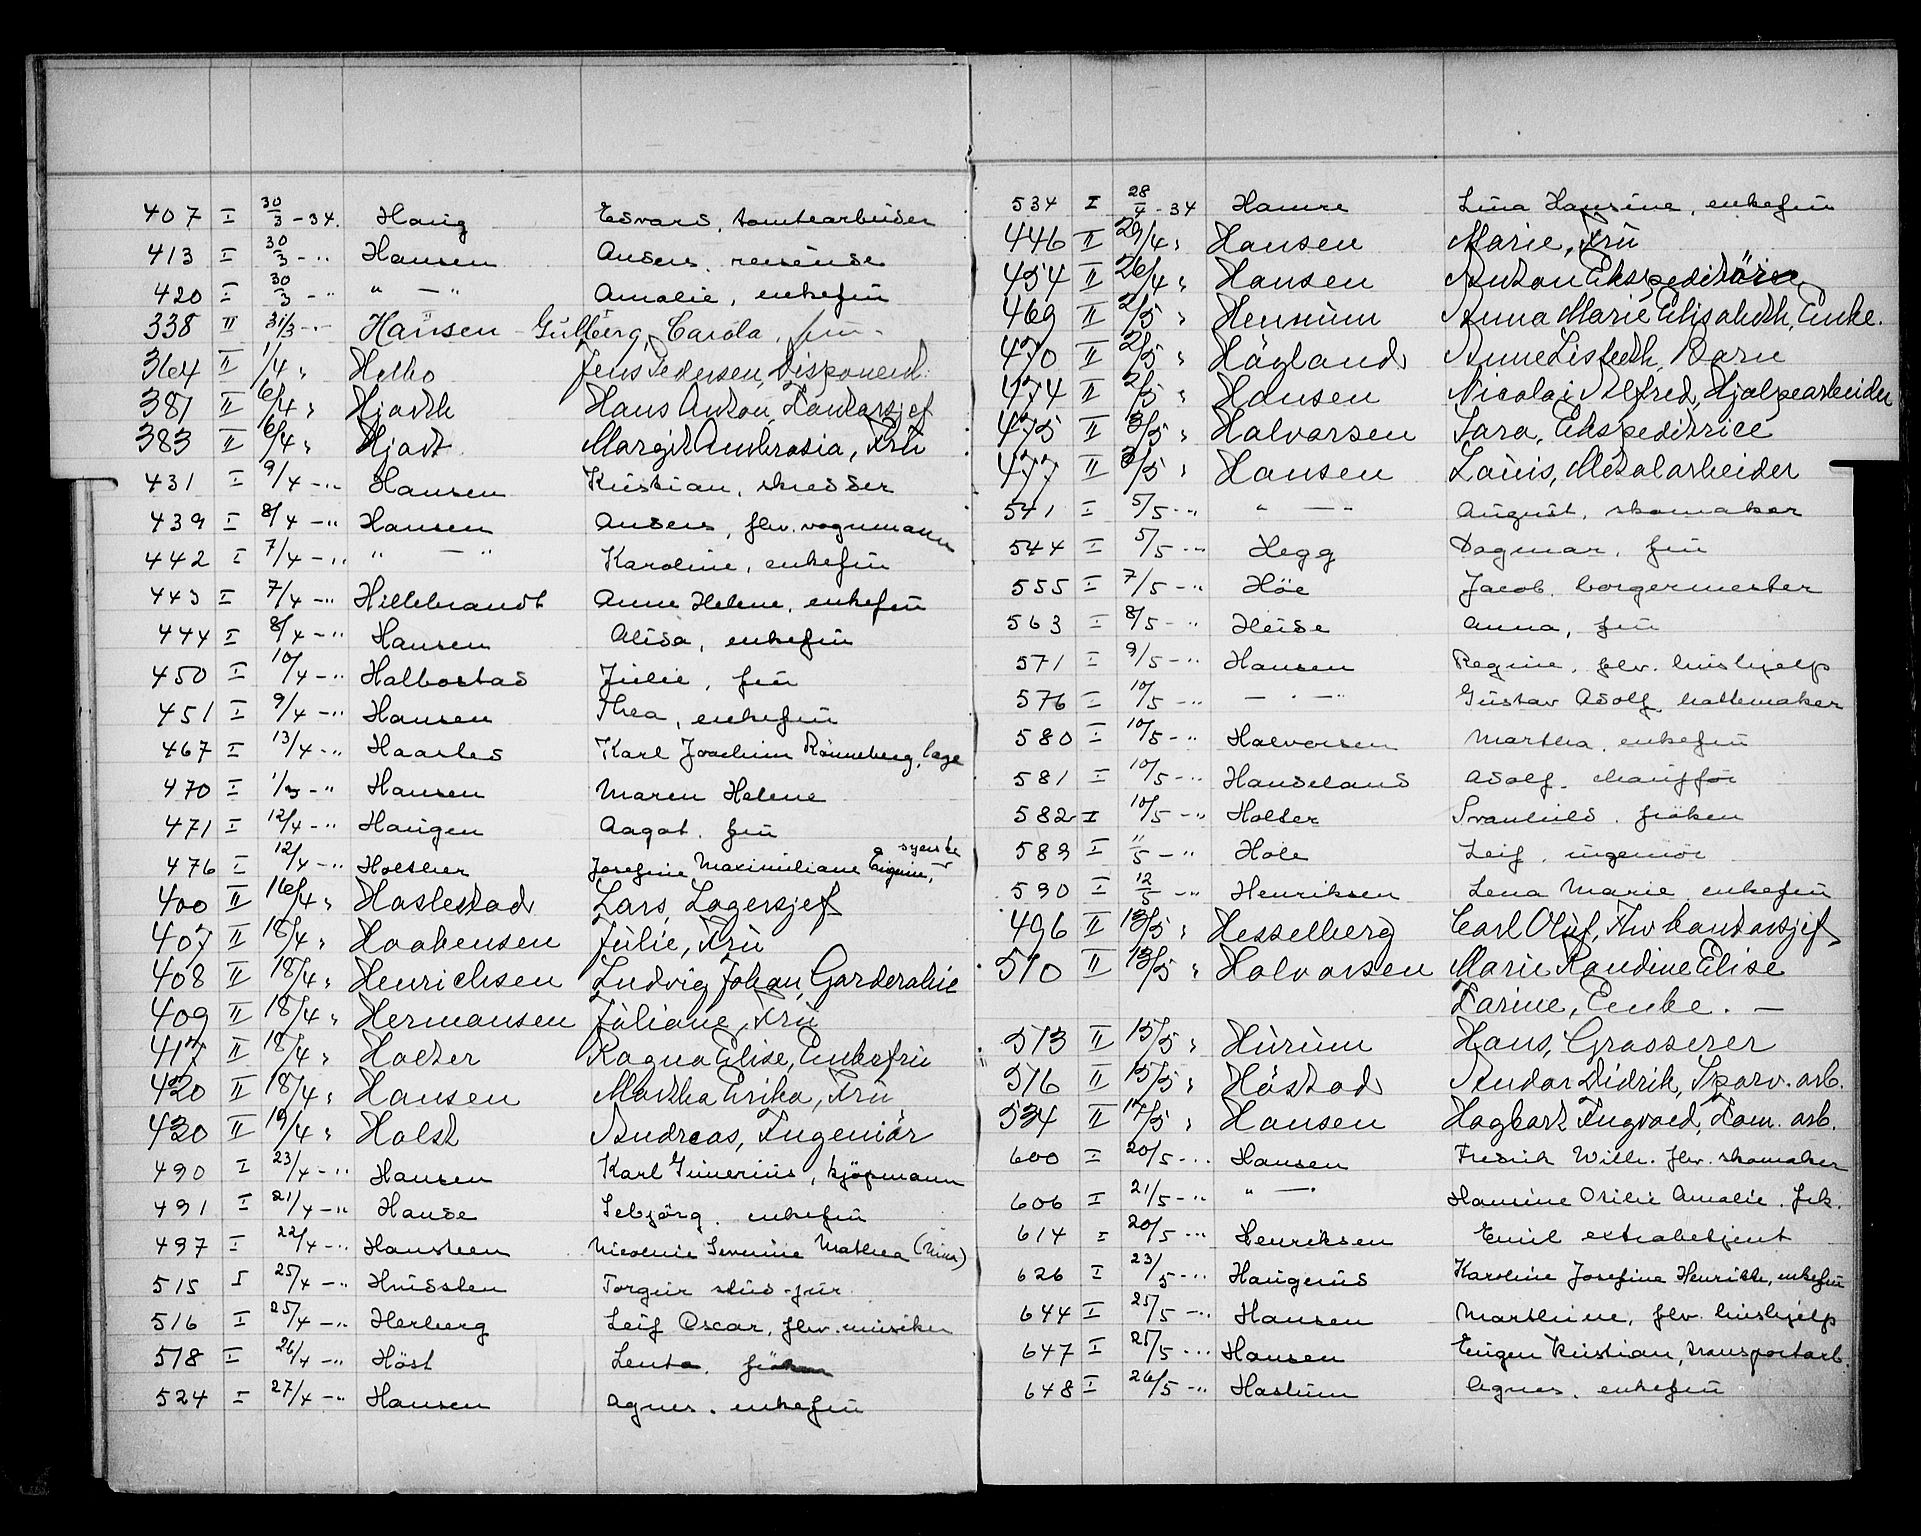 407 I 30/3 - 34. Haug Edvard, tomtearbeider
413 I 30/3 - " Hansen Anders, reisende
420 I 30/3 - " " — " Amalie, enkefru
338 II 31/3 - " Hansen - Gulberg, Carola, fru -
364 II 1/4 " Helbo Jens Pedersen, Disponent.
381 II 6/4 " Hjorth Hans Anton, Kontorsjef
383 II 6/4 " Hjort Margit Ambrosia, Fru
431 I 9/4 - " Hansen Kristian, skredder
439 I 8/4 - " Hansen Anders, fhv. vognmann
442 I 7/4 - " " — " Karoline, enkefru
443 I 7/4 - " Hillebrandt Anne Helene, enkefru
444 I 8/4 - " Hansen Alida, enkefru
450 I 10/4 - " Halbostad Julie, fru
451 I 9/4 - " Hansen Thea, enkefru
467 I 13/4 - " Haarles Karl Joachim Rönneberg, læge
470 I 1/3 - " Hansen Maren Helene
471 I 12/4 - " Haugen Aagot, fru
476 I 12/4 - " Holther Josefine Maximiliane Eugenie, syerske
400 II 16/4 " Haslestad Lars, Lagersjef
407 II 18/4 " Haakensen Julie, Fru
408 II 18/4 " Henrichsen Ludvig Johan, Garderobie
409 II 18/4 " Hermansen Juliane, Fru
417 II 18/4 " Holter Ragna Elise, Enkefru
420 II 18/4 " Hansen Martha Erika, Fru
430 II 19/4 " Holst Andreas, Ingeniör
490 I 23/4 - " Hansen Karl Gunerius, kjöpmann
491 I 21/4 - " Hande Sebjörg, enkefru
497 I 22/4 - " Hansteen Nicoline Severine Mathea (Nina)
515 I 25/4 - " Torgeir stud. jur.
516 I 25/4 - " Herberg Leif Oscar, fhv. musiker
518 I 26/4 - " Höst Lenta, fröken
524 I 27/4 - " Hansen Agnes, enkefru
534 I 28/4 - 34 Hamre Lina Hansine, enkefru
446 II 29/4 " Hansen Marie, Fru
454 II 26/4 " Hansen Anton Ekspeditör
469 II 2/5 " Hennum Anna Marie Elisabeth, Enke.
470 II 2/5 " Högland Anne Lisbeth, Barn
474 II 2/5 " Hansen Nicolai Alfred, Hjelpearbeider
475 II 3/5 " Halvorsen Sara, Ekspeditrice
477 II 3/5 " Hansen Louis, Metalarbeider
541 I 5/5 - " " — " August, skomaker
544 I 5/5 - " Hegg Dagmar, fru
555 I 7/5 - " Höe Jacob, borgermester
563 I 8/5 - " Heide Anna, fru
571 I 9/5 - " Hansen Regine, fhv. hushjelp
576 I 10/5 - " — " — " Gustav Adolf, hattemaker
580 I 10/5 - " Halvorsen Martha, enkefru
581 I 10/5 - " Handeland Adolf, chaufför
582 I 10/5 - " Holter Svanhild, fröken
589 I 11/5 - " Hole Leif, ingeniör
590 I 12/5 - " Henriksen Lena Marie, enkefru
496 II 13/5 " Hesselberg Carl Oluf, Fhv kontorsjef
510 II 13/5 " Halvorsen Marie Randine Elise
Karine, Enke. —
513 II 15/5 " Hurum Hans, Grosserer
516 II 15/5 " Höstad Andor Didrik, Sporv. arb.
534 II 17/5 " Hansen Hagbart Ingvald, Kom. arb.
600 I 20/5 - " Hansen Fredrik Wilh. fhv. skomaker
606 I 21/5 - " " — " Hansine Otilie Amalie, frk.
614 I 20/5 - " Henriksen Emil extrabetjent
626 I 23/5 - " Haugerud Karoline Josefine Henrikke, enkefru
644 I 25/5 - " Hansen Marthine, fhv. hushjelp
647 I 25/5 - " Hansen Eugen Kristian, transportarb.
648 I 26/5 - " Haslum Agnes, enkefru